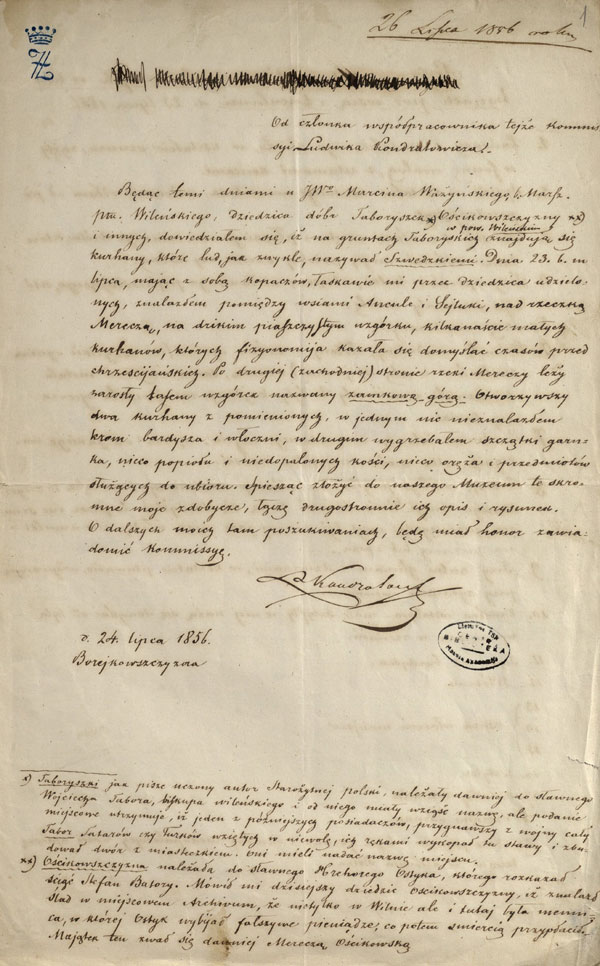 1
26 Lipca 1856 roku
Od członka współpracownika tejże Kommis
syi Ludwika Kondratowicza.
Będąc temi dniami u JWo Marcina Ważyńskiego, b. Marsz.
ptu. Wileńskiego, dziedzica dóbr Taboryszek x) Ościkowszczyzny xx)
w pow. Wileńskim
i innych, dowiedziałem się, iż na gruntach Taboryskich znajdują się
kurhany, które lud, jak zwykle, nazywać Szwedzkiemi. Dnia 23. b. m
lipca, mając z sobą kopaczów, łaskawie mi przez dziedzica udzielo-
nych, znalazłem pomiędzy wsiami Ancule i Sejluki, nad rzeczką
Mereczą, na dzikim piaszczystym wzgórku, kilkanaście małych
kurhanów, których fizyonomija kazała się domyślać czasów przed
chrześcijańskich. Po drugiej (zachodniej) stronie rzeki Mereczy leży
zarosły lasem wzgórek nazwany zamkową górą. Otworzywszy
dwa kurhany z pomienionych, w jednym nic nieznalazłem
krom bardysza i włóczni, w drugim wygrzebałem szczątki garn-
ka, nieco popiołu i niedopalonych kości, nieco oręża i przedmiotów
służących do ubioru. Spiesząc złożyć do naszego Muzeum te skro-
mne moje zdobycze, łączę drugostronnie ich opis i rysunek.
O dalszych moich tam poszukiwaniach, będę miał honor zawia-
domić Kommissyę.
L Kondratowicz
d. 24. lipca 1856.
Borejkowszczyzna
x) Taboryszki jak pisze uczony autor Starożytnej polski, należały dawniej do sławnego
Wojciecha Tabora, biskupa wileńskiego i od niego miały wziąść nazwę, ale podanie
miejscowe utrzymuje, iż jeden z późniejszych posiadaczów, przygnawszy z wojny cały
Tabor Tatarów czy Turków wziętych w niewolę, ich rękami wykopał tu stawy i zbu-
dował dwór z miasteczkiem. Oni mieli nadać nazwę miejscu.
xx) Ościkowszczyzna należała do sławnego Hrehorego Ostyka, którego rozkazał
ściąć Stefan Batory. Mówił mi dzisiejszy dziedzic Ościkowszczyzny, iż znalazł
ślad w miejscowem Archiwum, że nietylko w Wilnie ale i tutaj była menni-
ca, w której Ostyk wybijał fałszywe pieniądze, co potem śmiercią przypłacił.
Majątek ten zwał się dawniej Mereczą Ościkowską